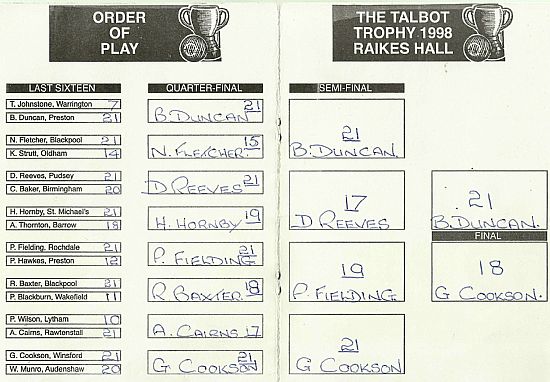 ORDER
OF
PLAY
THE TALBOT
TROPHY 1998
RAIKES HALL
LAST SIXTEEN
T. Johnstone, Warrington 7
B. Duncan, Preston 21
N. Fletcher, Blackpool 21
K. Strutt, Oldham 14
D. Reeves, Pudsey 21
C. Baker, Birmingham 20
H. Hornby, St. Michael's 21
A. Thornton, Barrow 18
P. Fielding, Rochdale 21
P. Hawkes, Preston 12
R. Baxter, Blackpool 21
P. Blackburn, Wakefield 11
P. Wilson, Lytham 10
A. Cairns, Rawtenstall 21
G. Cookson, Winsford 21
W. Munro, Audenshaw 20
QUARTER-FINAL
B. DUNCAN 21
N. FLETCHER 15
D REEVES 21
H. HORNBY 19
P. FIELDING 21
R BAXTER 18
A. CAIRNS 17
G. COOKSON 21
SEMI-FINAL
21
B. DUNCAN.
17
D REEVES
19
P. FIELDING.
21
G COOKSON
21
B. DUNCAN.
FINAL
18
G COOKSON.